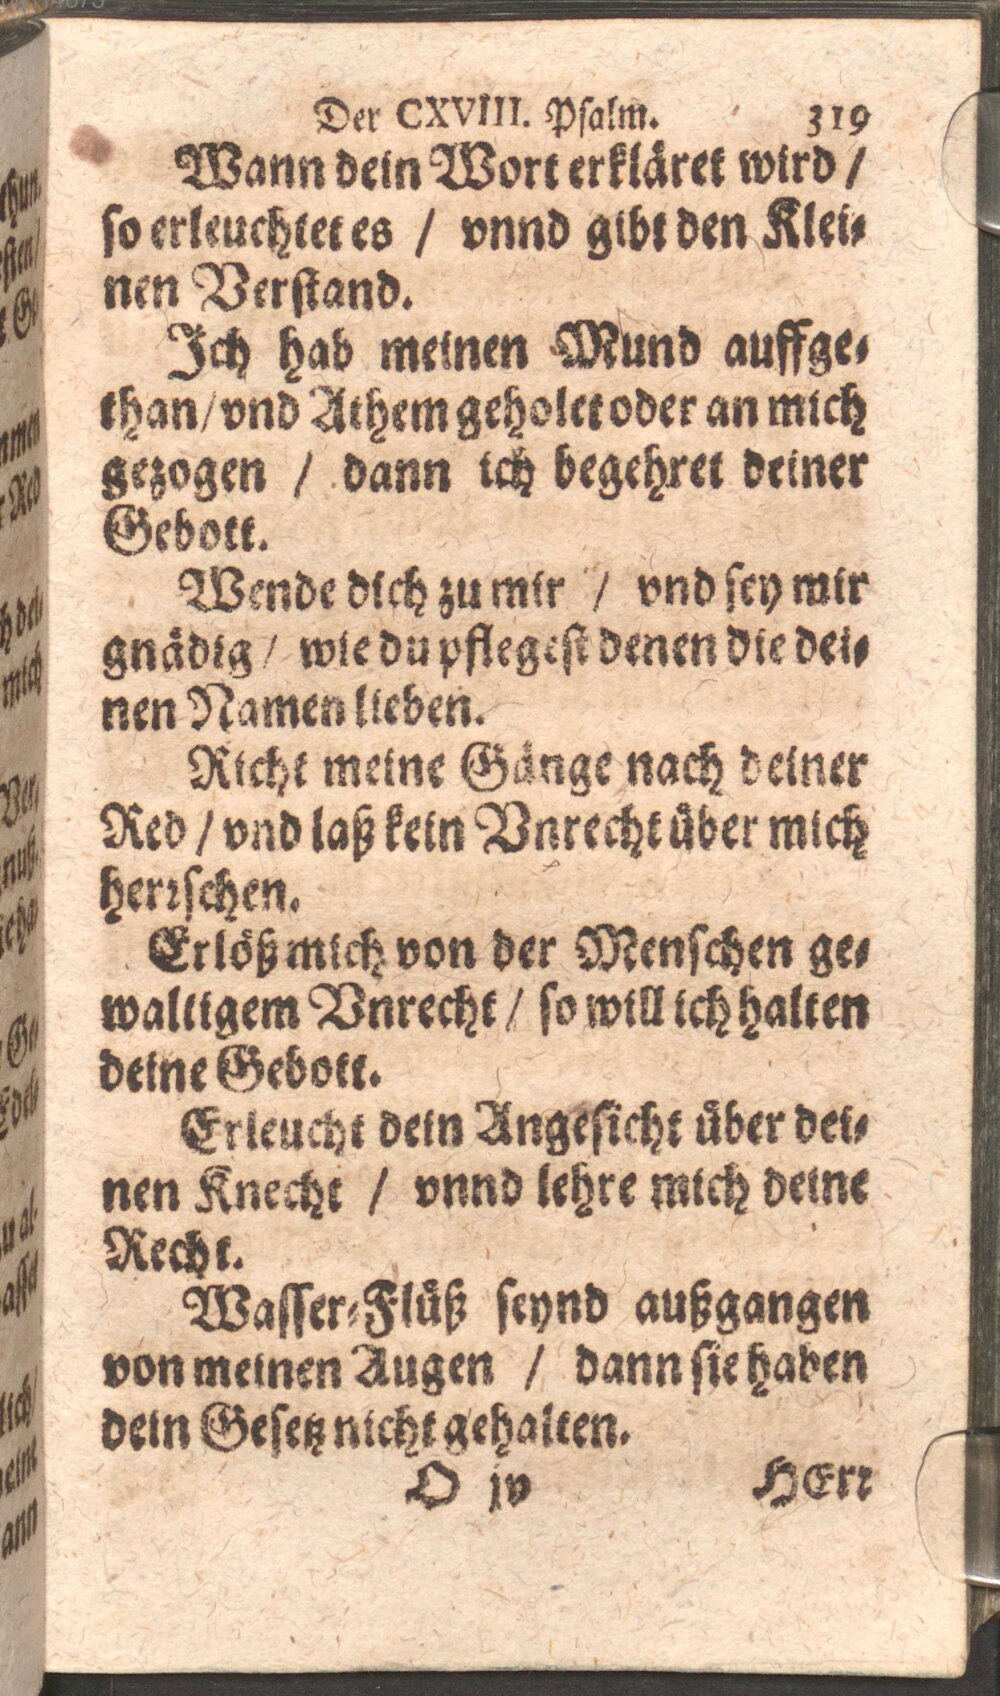 Der CXVIII. Psalm. 319
Wann dein Wort erkläret wird /
so erleuchtet es / vnnd gibt den Klei-
nen Verstand.
Ich hab meinen Mund auffge-
than/ vnd Athem geholet oder an mich
gezogen / dann ich begehret deiner
Gebott.
Wende dich zu mir / vnd sey mir
gnädig / wie du pflegest denen die dei-
nen Namen lieben.
Richt meine Gänge nach deiner
Red / vnd laß kein Vnrecht über mich
herrschen.
Erlöß mich von der Menschen ge-
waltigem Vnrecht / so will ich halten
deine Gebott.
Erleucht dein Angesicht über dei-
nen Knecht / vnnd lehre mich deine
Recht.
Wasser-Flüß seynd außgangen
von meinen Augen / dann sie haben
dein Gesetz nicht gehalten.
O jv HErr